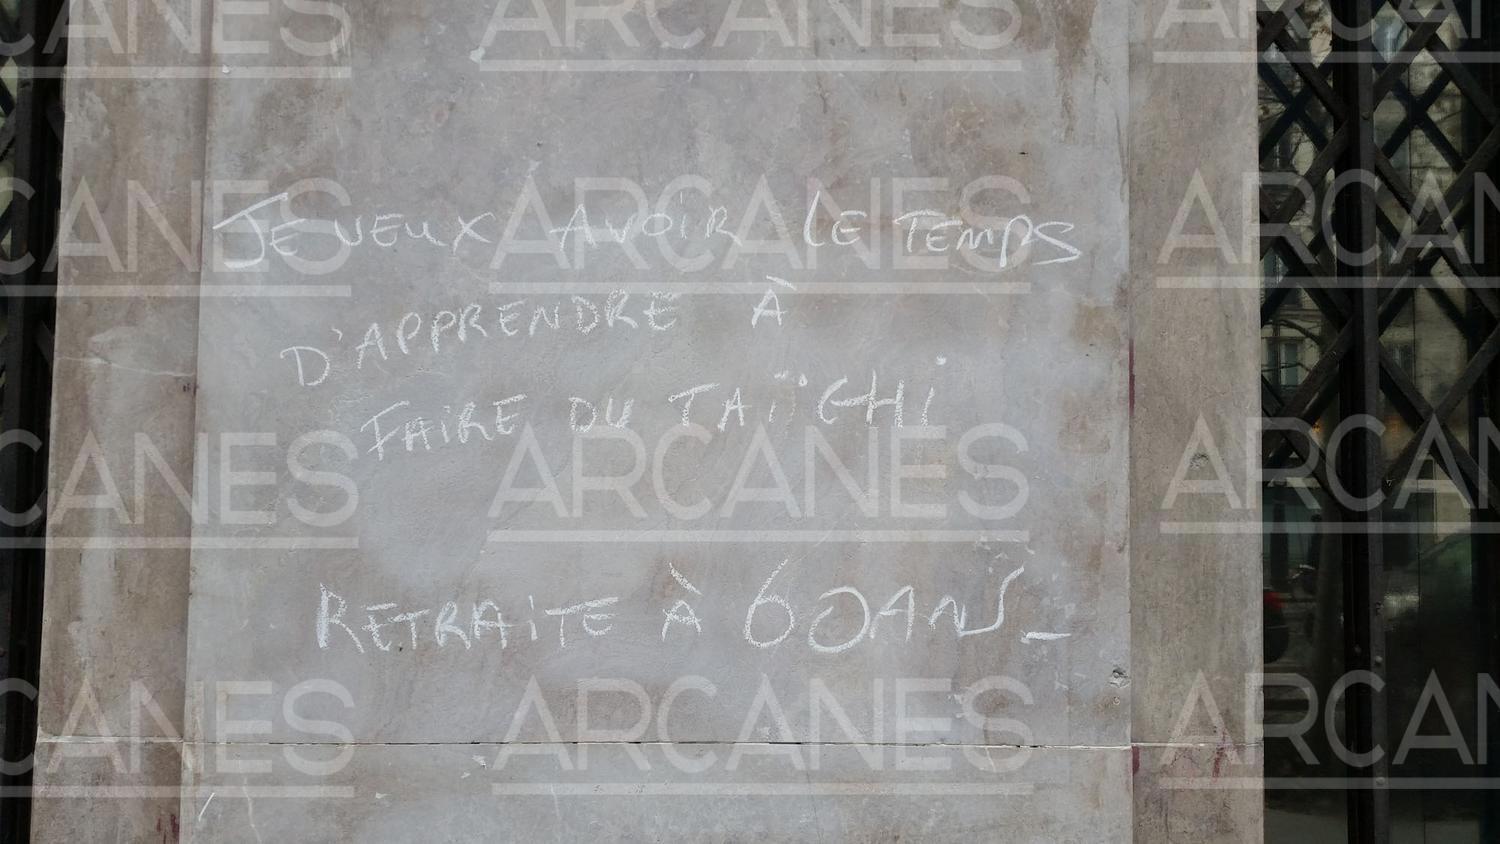 JE VEUX AVOIR LE TEMPS
D'APPRENDRE À
FAIRE DU TAÏCHI
RETRAITE À 60 ANS_
ARCANES
ARCANES
ARCANES
ARCANES
ARCANES
ARCANES
ARCANES
ARCANES
ARCANES
ARCANES
ARCANES
ARCANES